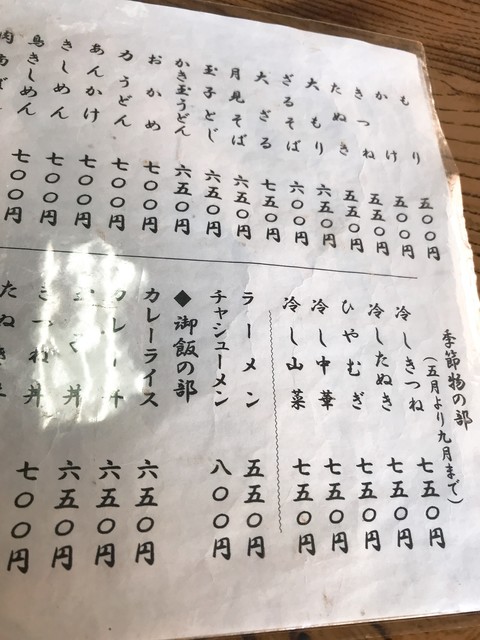 もり 五〇〇円
かけ 五〇〇円
きつね 五五〇円
たぬき 五五〇円
大もり 六五〇円
ざるそば 六〇〇円
大ざる 七五〇円
月見そば 六五〇円
玉子とじ 六五〇円
かき玉うどん 六五〇円
おかめ 七〇〇円
力うどん 七〇〇円
あんかけ 七〇〇円
きしめん 七〇〇円
鳥きしめん 七〇〇円
季節物の部
(五月より九月まで)
冷しきつね 七五〇円
冷したぬき 七五〇円
ひやむぎ 七五〇円
冷し中華 七五〇円
冷し山菜 七五〇円
ラーメン 五五〇円
チャシューメン 八〇〇円
◆御飯の部
カレーライス 六五〇円
カレー丼 六五〇円
丼 六五〇円
きつね丼 七〇〇円
たぬき